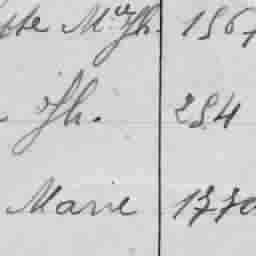 tte Mie Jh. 1567
Jh. 284
Marie 1770